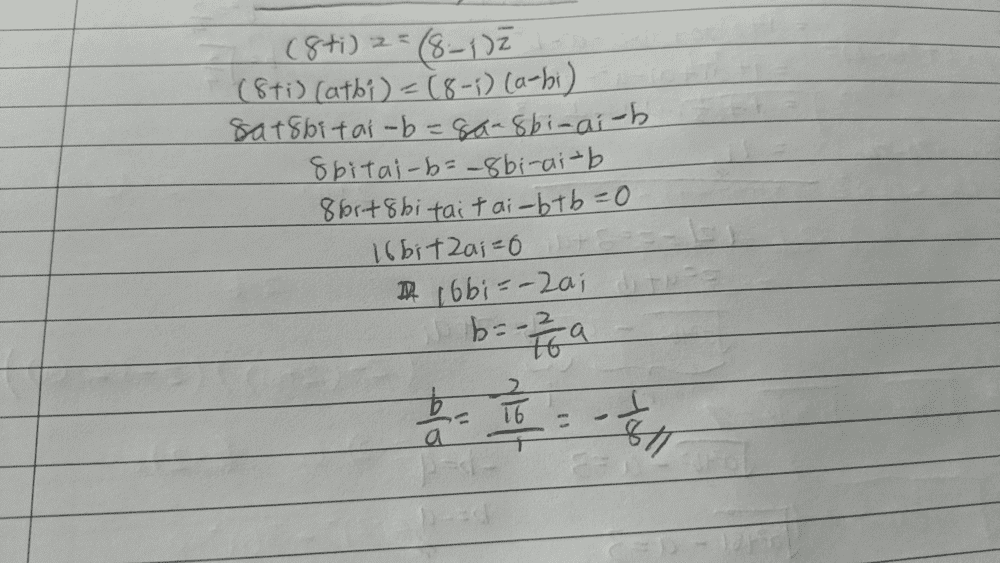 (8+i) z = (8-i) z̄
(8+i) (a+bi) = (8-i) (a-bi)
8a+8bi+ai-b = 8a-8bi-ai-b
8bi+ai-b = -8bi-ai-b
8bi+8bi+ai+ai-b+b=0
16bi+2ai=0
16bi=-2ai
b=-2/16 a
b/a = (-2/16)/1 = -1/8 //